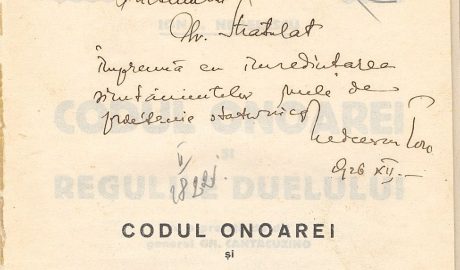 Stratulat
împreună cu încredințarea
simțămintelor mele de
prietenie statornică
CODUL ONOAREI
ȘI
REGULILE DUELULUI
926 XII.—
CODUL ONOAREI
și
general GH. CANTACUZINO